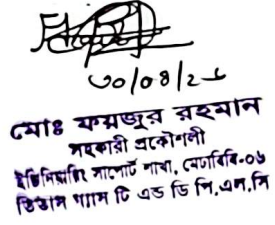 ৩০/০৪/২৬
মোঃ ফয়জুর রহমান
সহকারী প্রকৌশলী
ইঞ্জিনিয়ারিং সাপোর্ট শাখা, মেটাবিবি-০৬
তিতাস গ্যাস টি এন্ড ডি পি.এল.সি